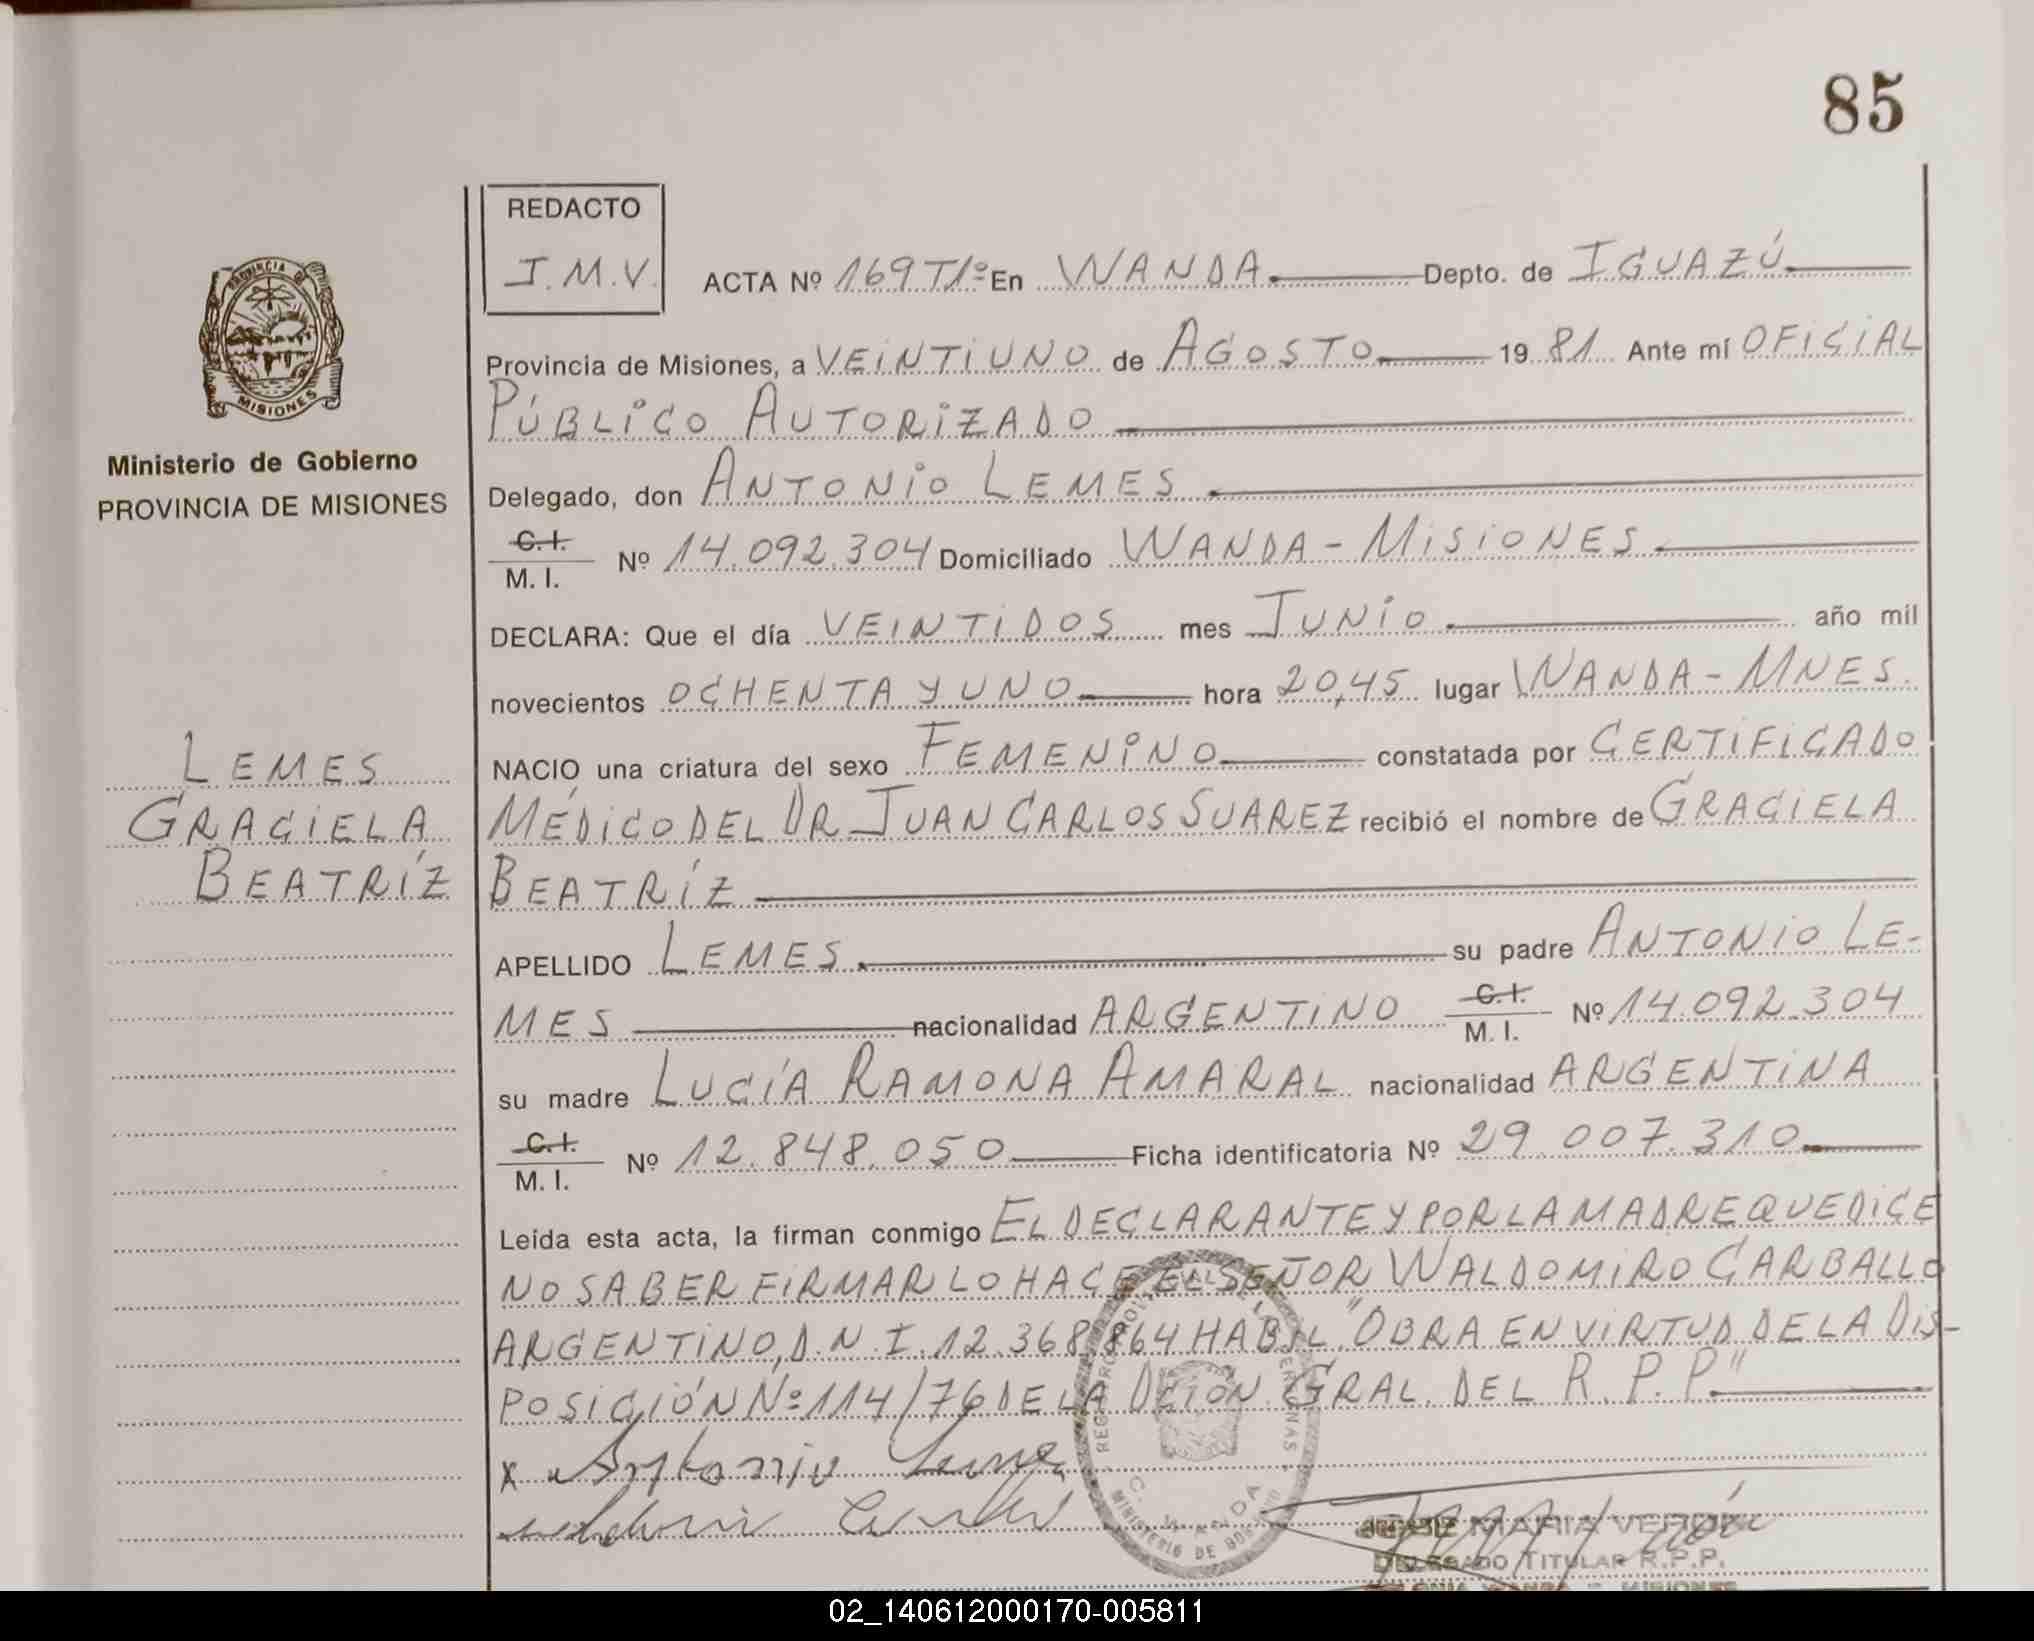 85
REDACTO
J.M.V. ACTA Nº 169 T1º En WANDA. Depto. de IGUAZÚ
Provincia de Misiones, a VEINTIUNO de AGOSTO 19 81 Ante mí OFICIAL
PÚBLICO AUTORIZADO
Delegado, don ANTONIO LEMES
C.I.
M. I. Nº 14.092.304 Domiciliado WANDA - MISIONES
DECLARA: Que el día VEINTIDOS mes JUNIO año mil
novecientos OCHENTA Y UNO hora 20,45 lugar WANDA - MNES.
NACIO una criatura del sexo FEMENINO constatada por CERTIFICADO
MÉDICO DEL DR. JUAN CARLOS SUAREZ recibió el nombre de GRACIELA
BEATRÍZ
APELLIDO LEMES. su padre ANTONIO LE-
MES nacionalidad ARGENTINO C.I. M. I. Nº 14.092.304
su madre LUCÍA RAMONA AMARAL nacionalidad ARGENTINA
C.I.
M. I. Nº 12.848.050 Ficha identificatoria Nº 29.007.310
Leída esta acta, la firman conmigo EL DECLARANTE Y POR LA MADRE QUE DICE
NO SABER FIRMAR LO HACE EL SEÑOR WALDOMIRO CARBALLO
ARGENTINO, D.N.I. 12.368.864 HABIL "OBRA EN VIRTUD DE LA DIS-
POSICIÓN Nº 114/76 DE LA DCIÓN GRAL. DEL R.P.P."
x Antonio Lemes
MARIA VERÓN
DELEGADO TITULAR R.P.P.
PROVINCIA DE
MISIONES
Ministerio de Gobierno
PROVINCIA DE MISIONES
LEMES
GRACIELA
BEATRÍZ
WANDA
MINISTERIO DE
02_140612000170-005811